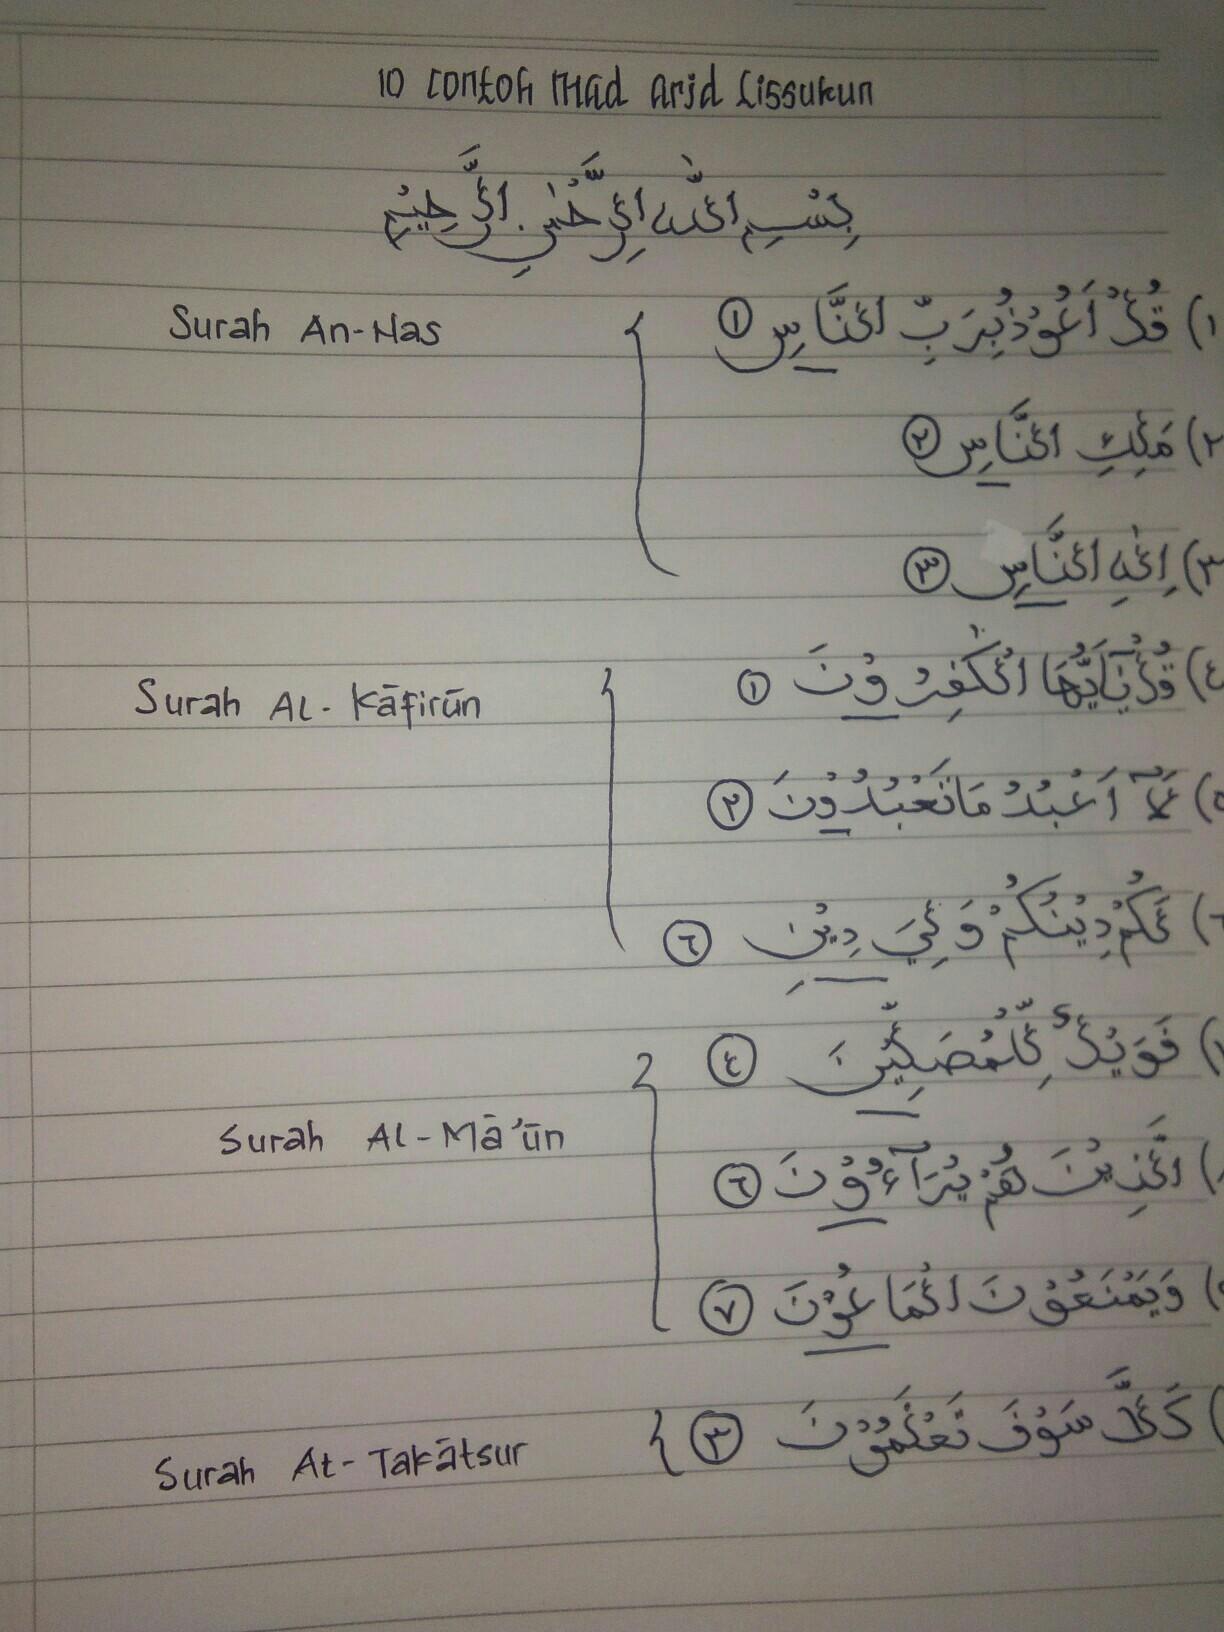 10 contoh Mad Arid Lissukun
بِسْمِ اللّٰهِ الرَّحْمٰنِ الرَّحِيْمِ
Surah An-Nas
١) قُلْ اَعُوْذُ بِرَبِّ النَّاسِ ١
٢) مَلِكِ النَّاسِ ٢
٣) اِلٰهِ النَّاسِ ٣
Surah AL-Kāfirūn
٤) قُلْ يٰٓاَيُّهَا الْكٰفِرُوْنَ ١
٥) لَآ اَعْبُدُ مَا تَعْبُدُوْنَ ٢
لَكُمْ دِيْنُكُمْ وَلِيَ دِيْنِ ٦
Surah AL-Mā'ūn
فَوَيْلٌ لِّلْمُصَلِّيْنَ ٤
الَّذِيْنَ هُمْ يُرَآءُوْنَ ٦
وَيَمْنَعُوْنَ الْمَاعُوْنَ ٧
Surah At-Takātsur
كَلَّا سَوْفَ تَعْلَمُوْنَ ٣